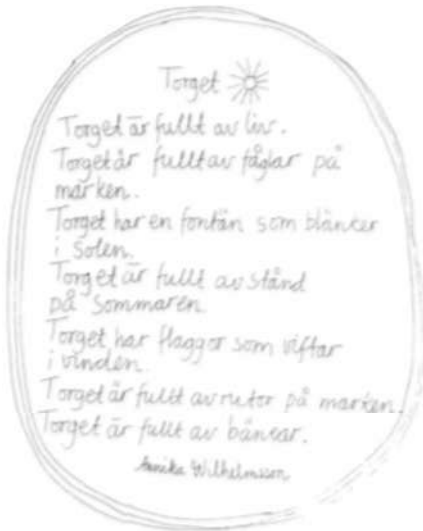 Torget
Torget är fullt av liv.
Torget är fullt av fåglar på
marken.
Torget har en fontän som blänker
i Solen.
Torget är fullt av stånd
på sommaren.
Torget har flaggor som viftar
i vinden.
Torget är fullt av rutor på marken.
Torget är fullt av bänkar.
Annika Wilhelmsson